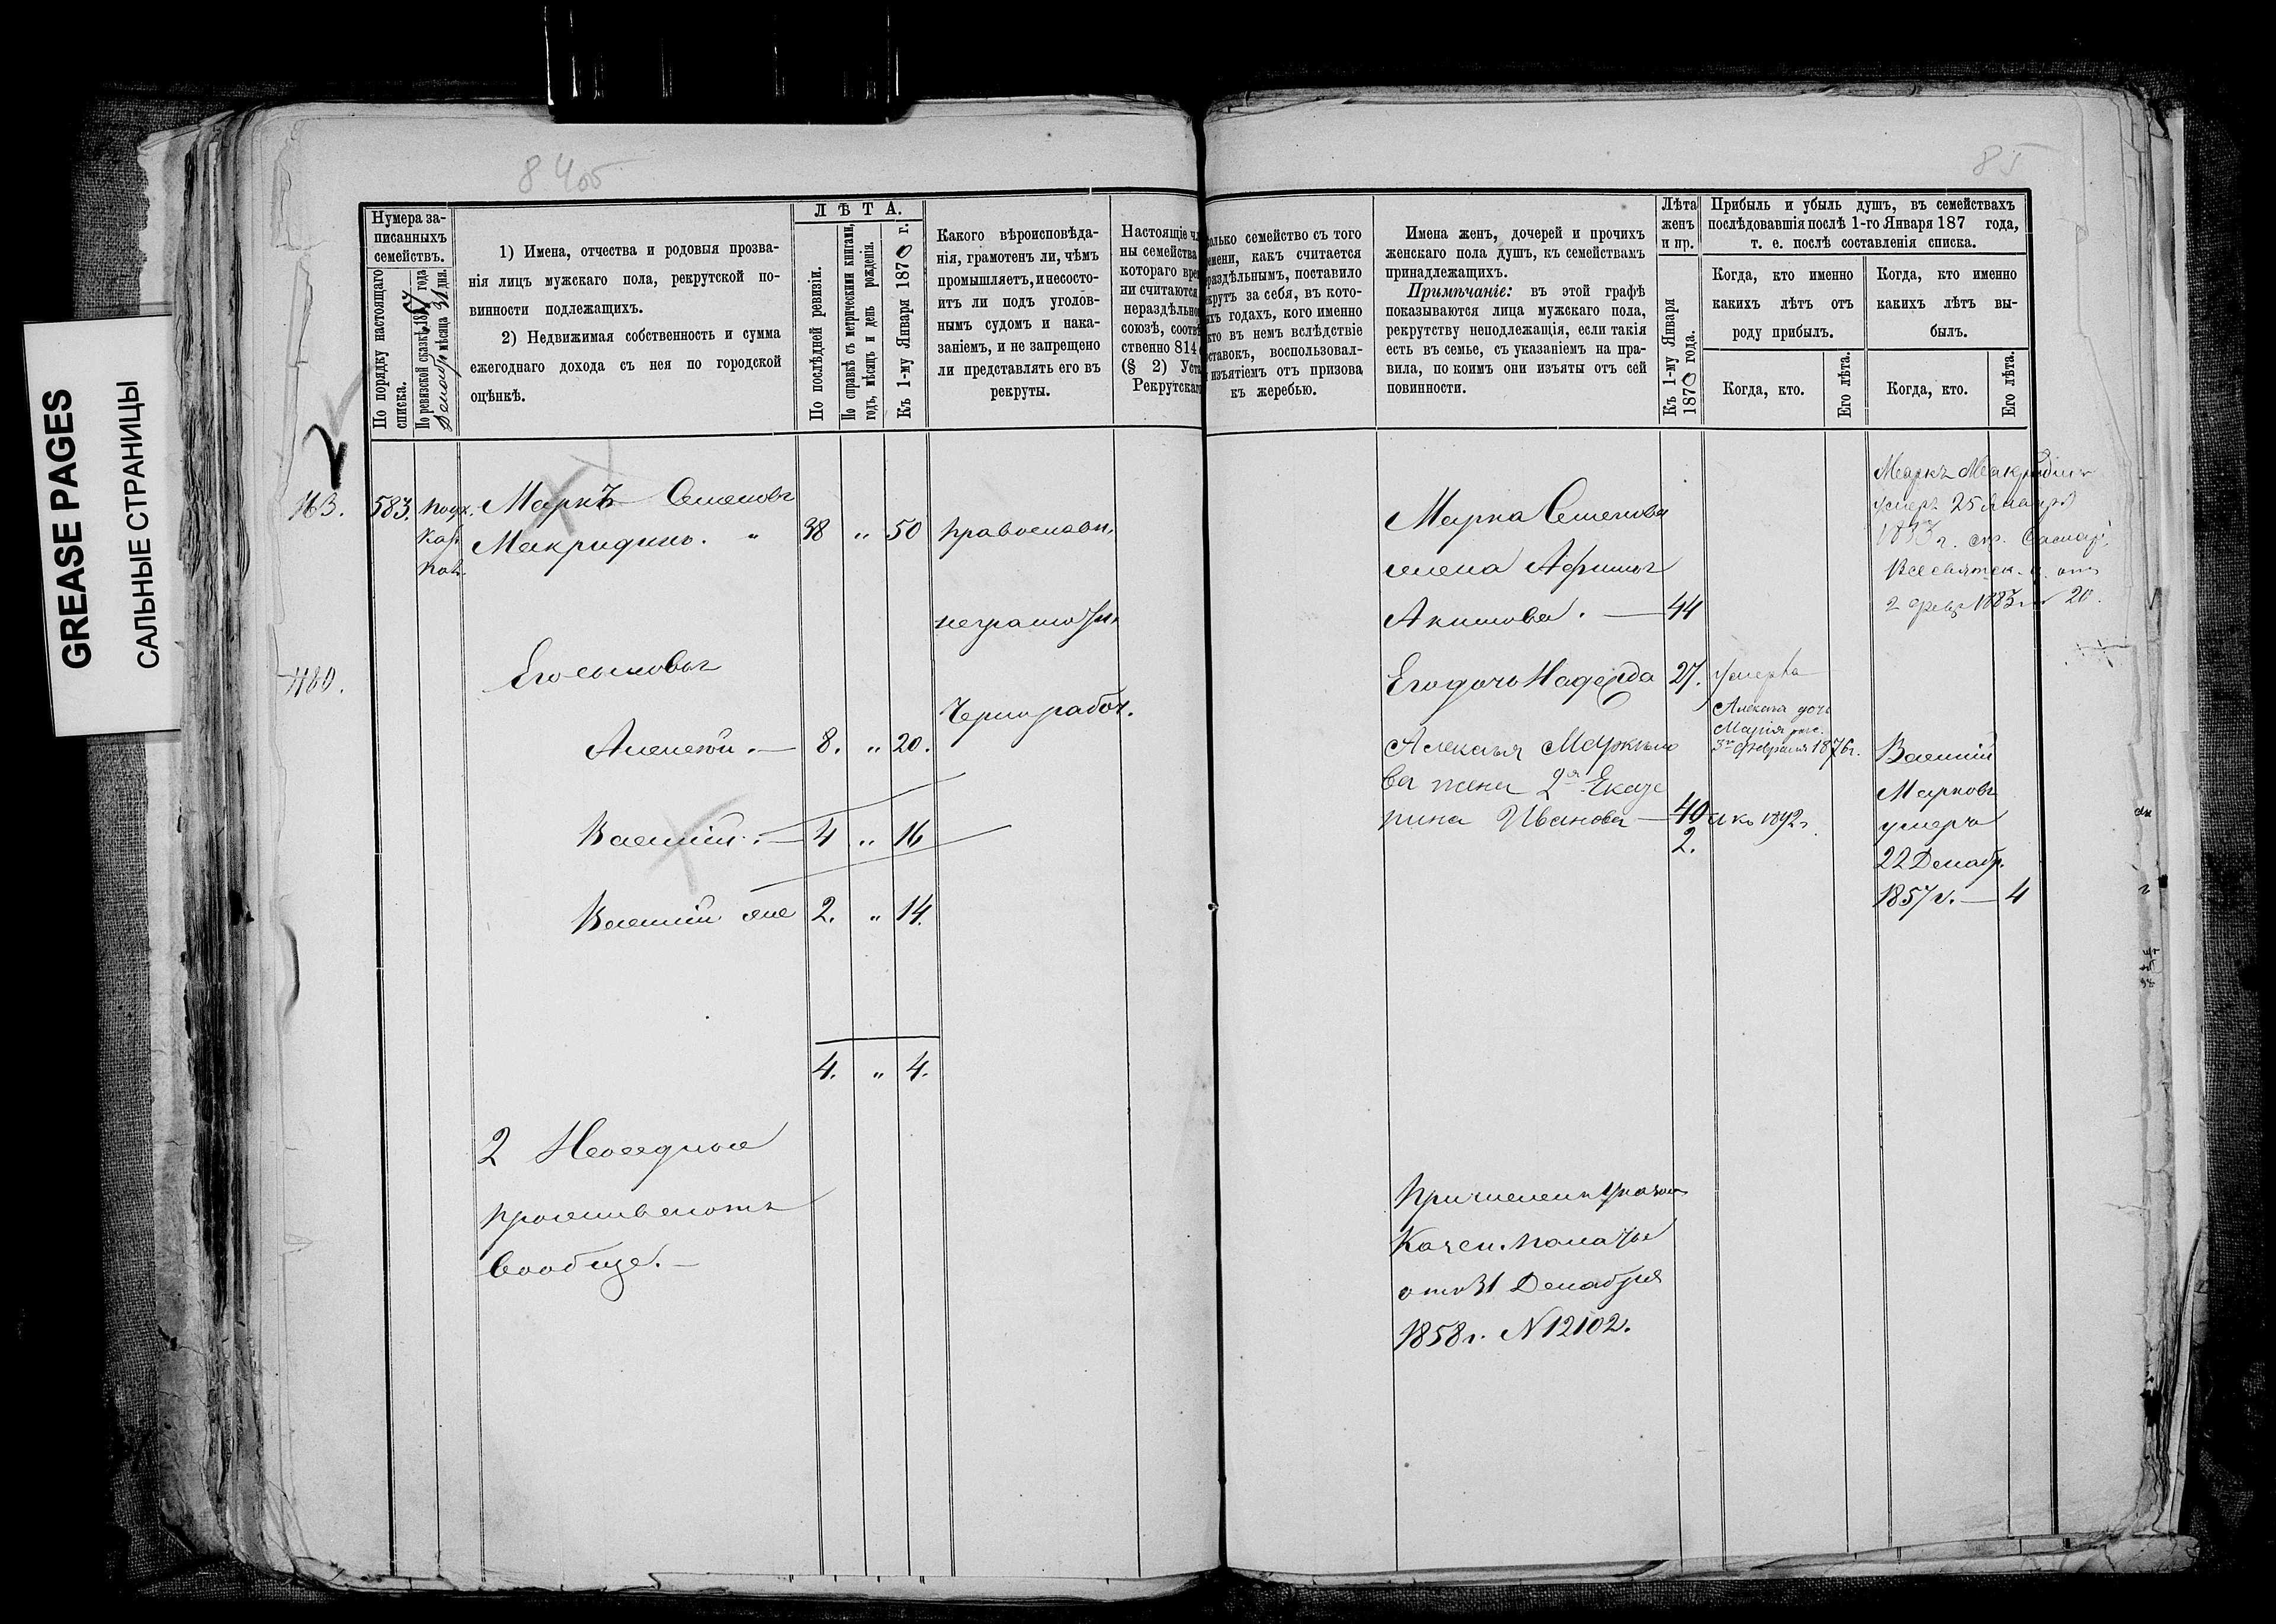 GREASE PAGES
САЛЬНЫЕ СТРАНИЦЫ
84 об
85
Нумера за-
писанныхъ
семействъ.
По порядку настоящаго
списка.
По ревизской сказкѣ 1857 года
мѣсяца 31 дня.
1) Имена, отчества и родовыя прозва-
нія лицъ мужскаго пола, рекрутской по-
винности подлежащихъ.
2) Недвижимая собственность и сумма
ежегоднаго дохода съ нея по городской
оцѣнкѣ.
ЛѢТА.
По послѣдней ревизіи.
По справкѣ съ метрическими книгами,
годъ, мѣсяцъ и день рожденія.
Къ 1-му Января 1870 г.
Какого вѣроисповѣда-
нія, грамотенъ ли, чѣмъ
промышляетъ, и несосто-
итъ ли подъ уголов-
нымъ судомъ и нака-
заніемъ, и не запрещено
ли представлять его въ
рекруты.
Настоящіе чл
ны семейства
котораго вре
ни считаются
нераздѣльно
союзѣ, соотвѣ
ственно 814
(§ 2) Уст
Рекрутскаг
олько семейство съ того
емени, какъ считается
раздѣльнымъ, поставило
крутъ за себя, въ кото-
ыхъ годахъ, кого именно
кто въ немъ вслѣдствіе
оставокъ, воспользовал-
изъятіемъ отъ призова
къ жеребью.
Имена женъ, дочерей и прочихъ
женскаго пола душъ, къ семействамъ
принадлежащихъ.
Примѣчаніе: въ этой графѣ
показываются лица мужскаго пола,
рекрутству неподлежащія, если такія
есть въ семьѣ, съ указаніемъ на пра-
вила, по коимъ они изъяты отъ сей
повинности.
Лѣта
женъ
и пр.
Къ 1-му Января
1870 года.
Прибыль и убыль душъ, въ семействахъ
послѣдовавшія послѣ 1-го Января 187 года,
т. е. послѣ составленія списка.
Когда, кто именно
какихъ лѣтъ отъ
роду прибылъ.
Когда, кто именно
какихъ лѣтъ вы-
былъ.
Когда, кто.
Его лѣта.
Когда, кто.
Его лѣта.
583.
Маркъ Семеновъ
Макридинъ. " 38 " 50
православн.
неграмотн.
Чернорабоч.
480.
Его сыновья
Алексѣй. — 8. " 20.
Василій. — 4 " 16
Василій же 2. " 14.
4. " 4.
2
проживаютъ
вообще. —
Марка Семенова
жена Афимья
Акимова. — 44
Его дочь Надежда 27.
Умерла
Алексѣя Маркело
ва жена 2я Екате
рина Иванова — 40 къ 1892 г.
2.
Алексѣя дочь
Марія рож.
3го Февраля 1876 г.
Маркъ Макридинъ
умеръ 25 Января
2 февр 1883 г. № 20.
Василій
Марковъ
умеръ
22 Декабр.
1857 г. — 4
Причислен Указом
Казен. Палаты
отъ 31 Декабря
1858 г. N 12102.